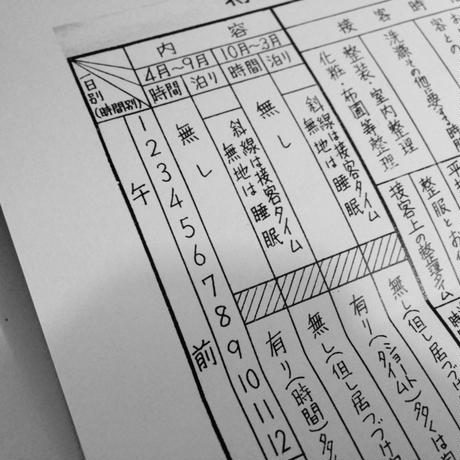 内容
接客時
4月〜9月
10月〜3月
日別
(時間別)
時間
泊り
時間
泊り
午前
1
2
3
4
5
6
7
8
9
10
11
12
無し
斜線は接客タイム
無地は睡眠
無し
斜線は接客タイム
無地は睡眠
化粧・布団等整理
整装、室内整理
洗滌その他と要する時間
接客上の整理タイム
整服とお
有り(時間)多く
無し(但し居つづけ
有り(ショートタイム)多くは
無し(但し居つづ